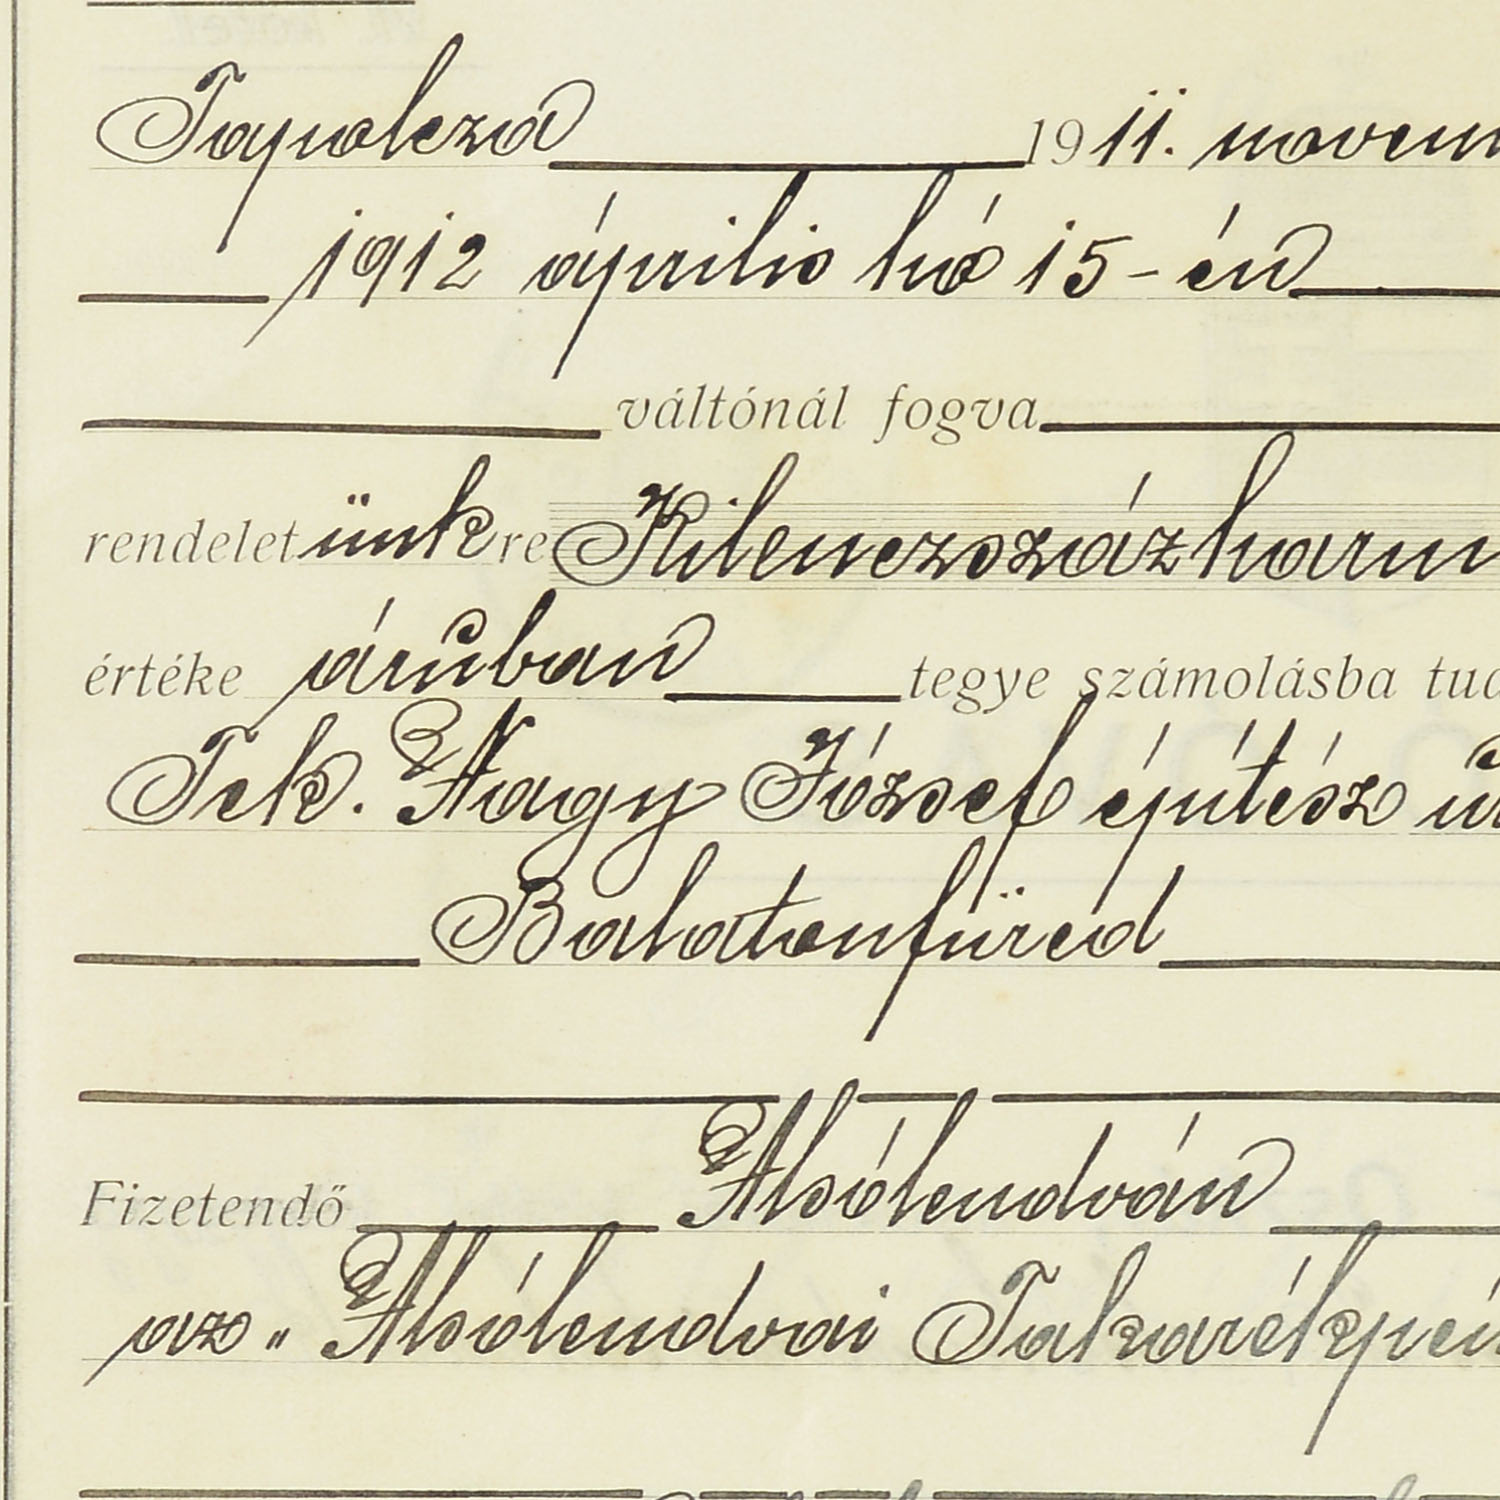 Tapolcza 1911. novem
1912 április hó 15-én
váltónál fogva
rendeletünkre Kilenczszázharm
értéke áruban tegye számolásba tud
Tek. Nagy József építész úr
Balatonfüred
Fizetendő Alsólendván
az „Alsólendvai Takarékpén